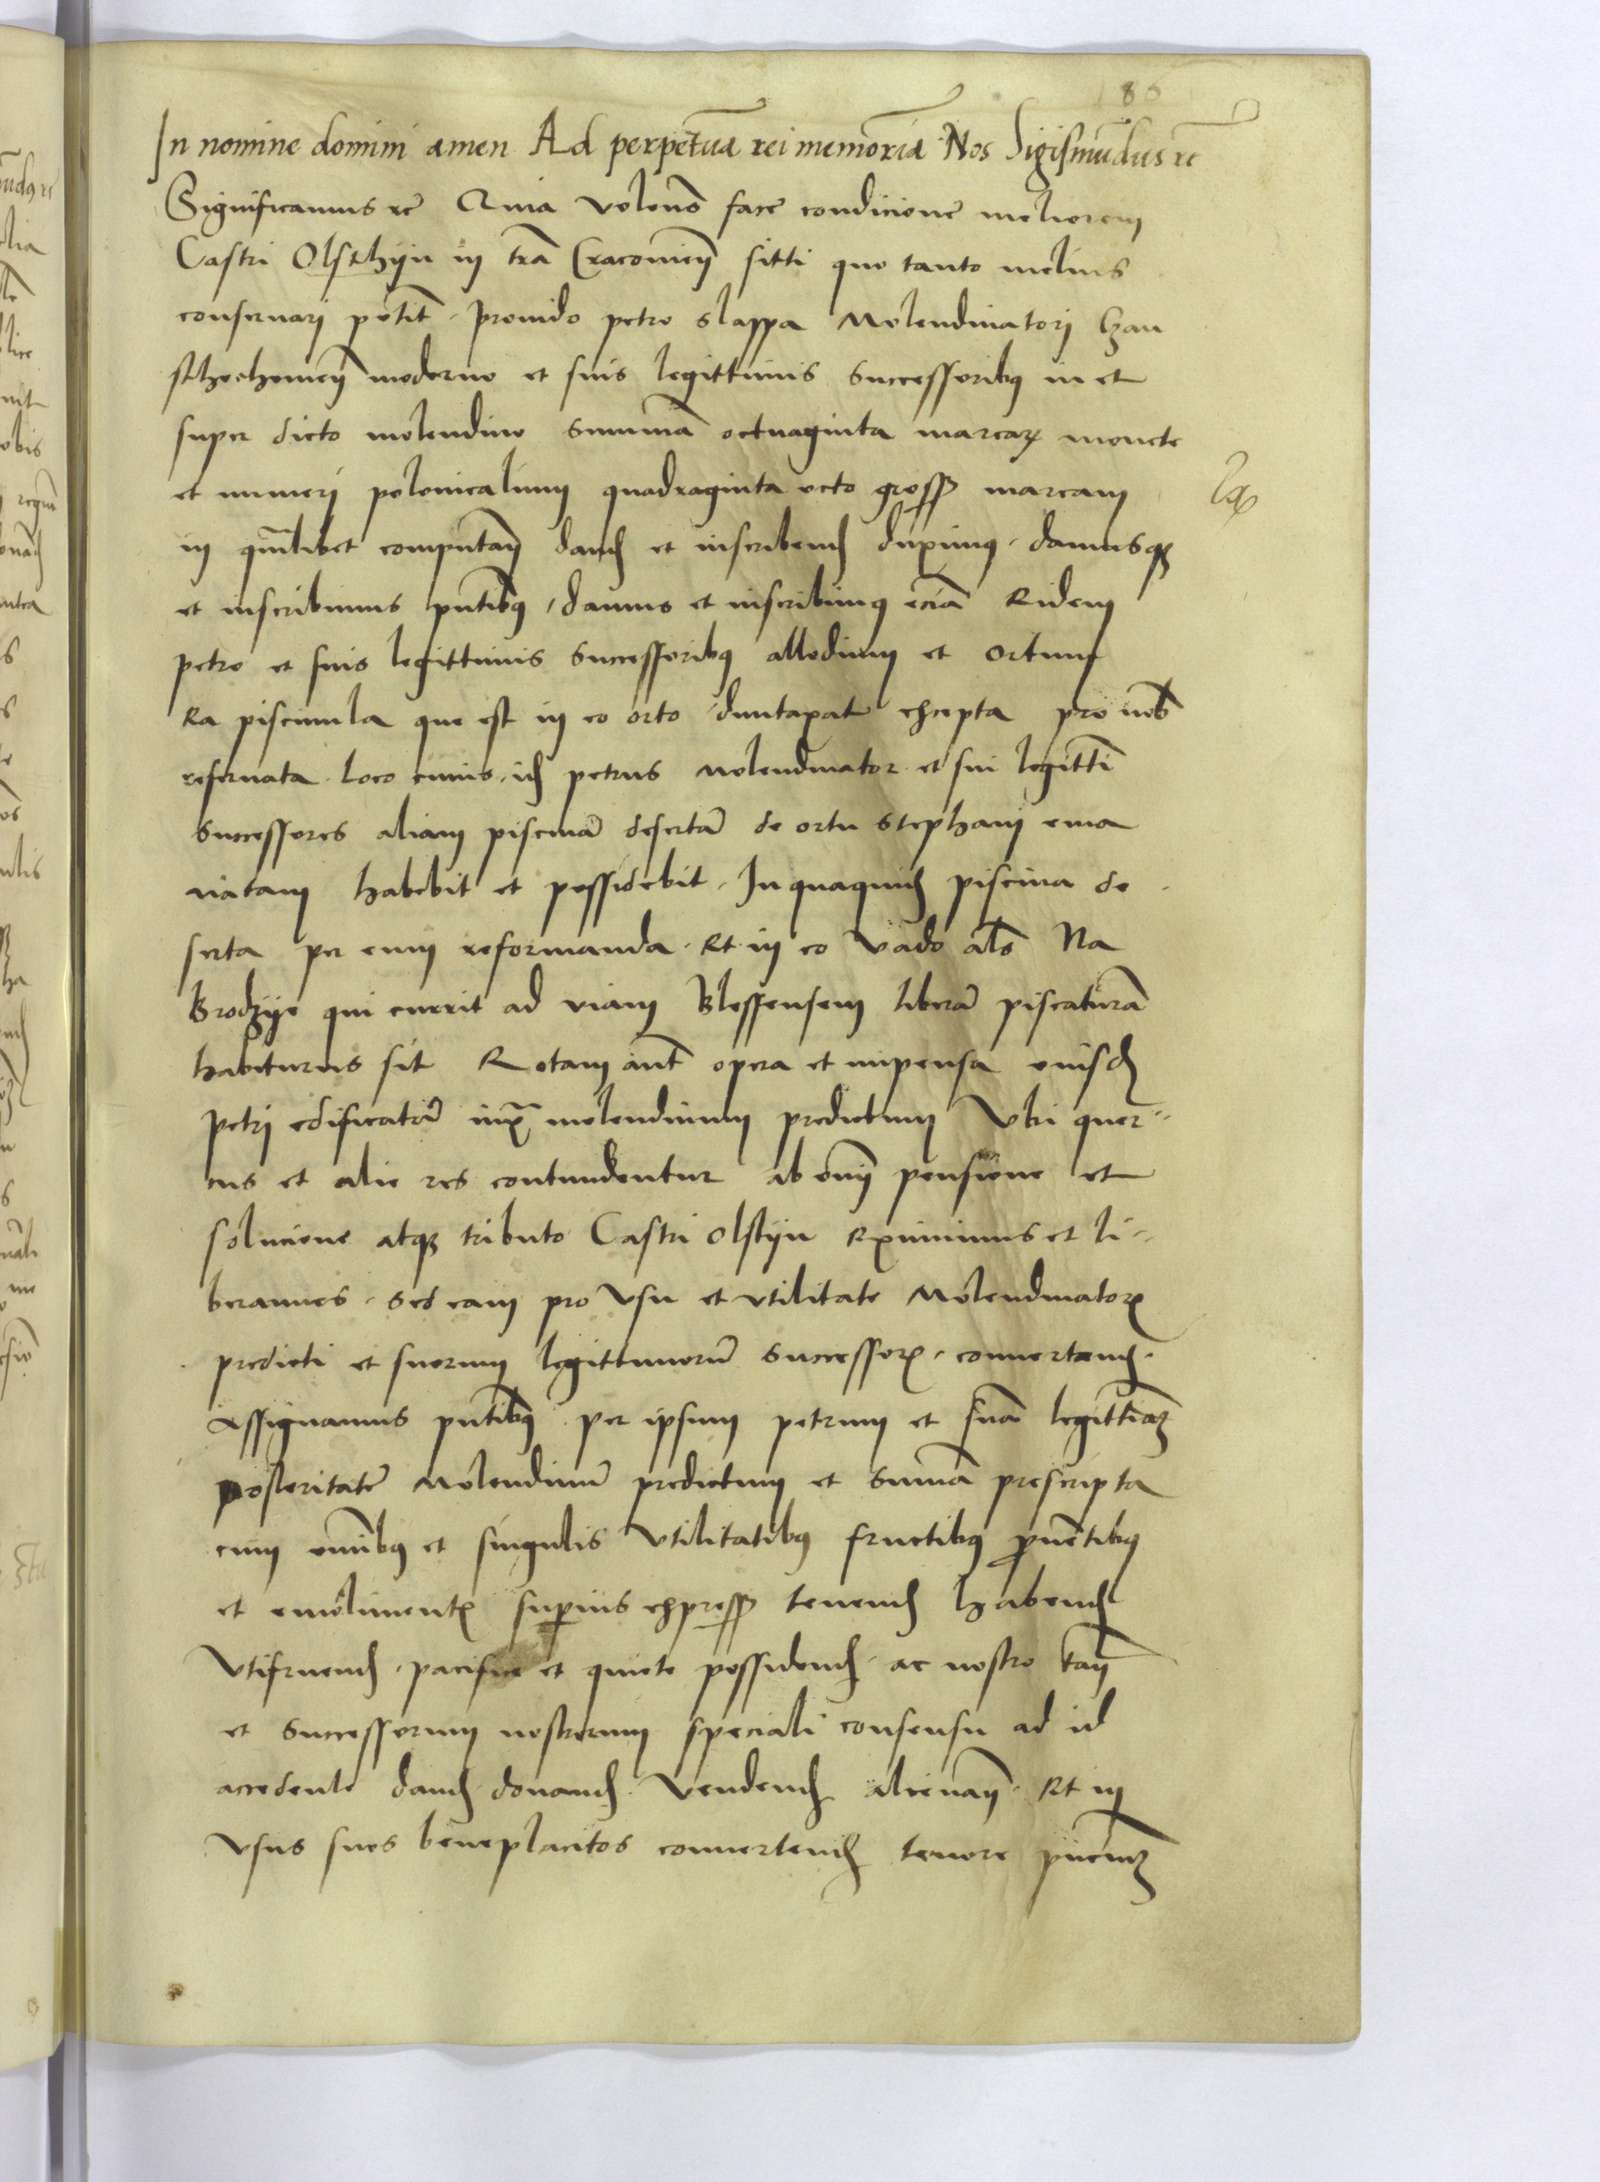 86
In nomine domini amen Ad perpetuā rei memoriā Nos Sigismūdus rc̄
Significamus rc̄ Quia volen̄ facē condicionē meliorem
Castri Olsthijn in trā Cracovien̄ sitti quo tanto melius
conservari potit̄ . provido petro slappa Molendinatori
moderno et suis legittimis successoribꝯ in et
super dicto molendino summā octuaginta marcaꝝ monete
et numeri polonicalium quadraginta octo gross marcam
in quālibet computan̄ dand et inscribend duximꝯ . damusqꝫ
et inscribimus pn̄tibꝯ , damus et inscribimꝯ eciā Eidem
petro et suis legittimis successoribꝯ allodium et ortum
Ea piscinula que est in eo orto duntaxat excepta pro nob̄
reservata . loco cuius . id petrus Molendinator et sui legittī
successores aliam piscinā desertā de ortu stephani ema
natam habebit et possidebit . In quaquid piscina de
serta per eum reformanda . Et in eo vado al̄s Na
Brodzije qui currit ad viam Blessensem liberā piscaturā
habiturus sit Rotam aut̄ opera et impensa eiusd
petri edificatā iuxᵃ molendinum predictum Ubi quer¨
cus et alie res contunduntur ab omī pensione et
solucione atqꝫ tributo Castri olstijn Eximimus et li¨
beramus . sed eam pro usu et utilitate Molendinatorꝭ
predicti et suorum legittimorū successorꝭ . convertend .
Assignamus pn̄tibꝯ . per ipsum petrum et suā legittimāꝫ
posteritatē Molendinū predictum et summā prescripta
cum omībꝯ et singulis utilitatibꝯ fructibꝯ provētibꝯ
et emolimentꝭ superius express tenend habend
Utifruend . pacifice et quiete possidend . ac nostro tan̄
et successorum nostrorum speciali consensu ad id
accedente dand . donand . vendend alienan̄ . Et in
usus suos beneplacitos convertend tenore